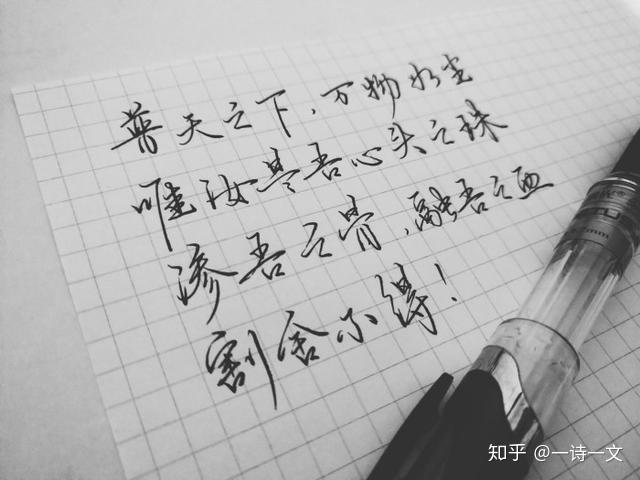 普天之下，万物如尘
唯汝是吾心头之珠
渗吾之骨，融吾之血
割舍不得！
mm
知乎 @一诗一文